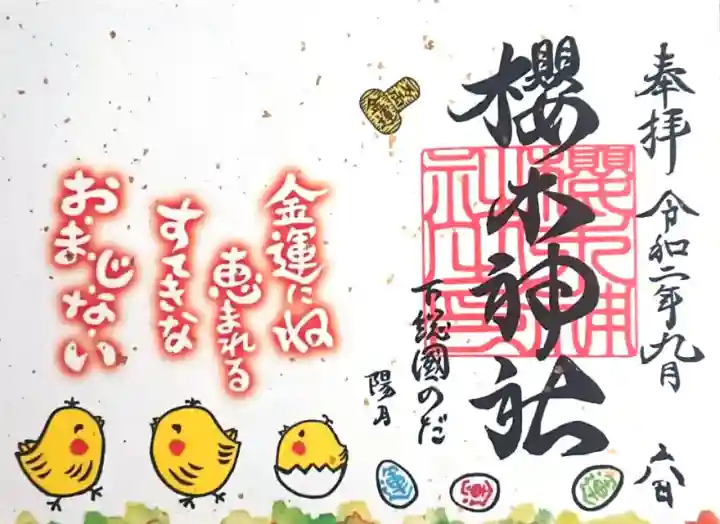 奉拝
令和二年九月
六日
櫻木神社
下総國のだ
陽月
金運にね
恵まれる
すてきな
おまじない